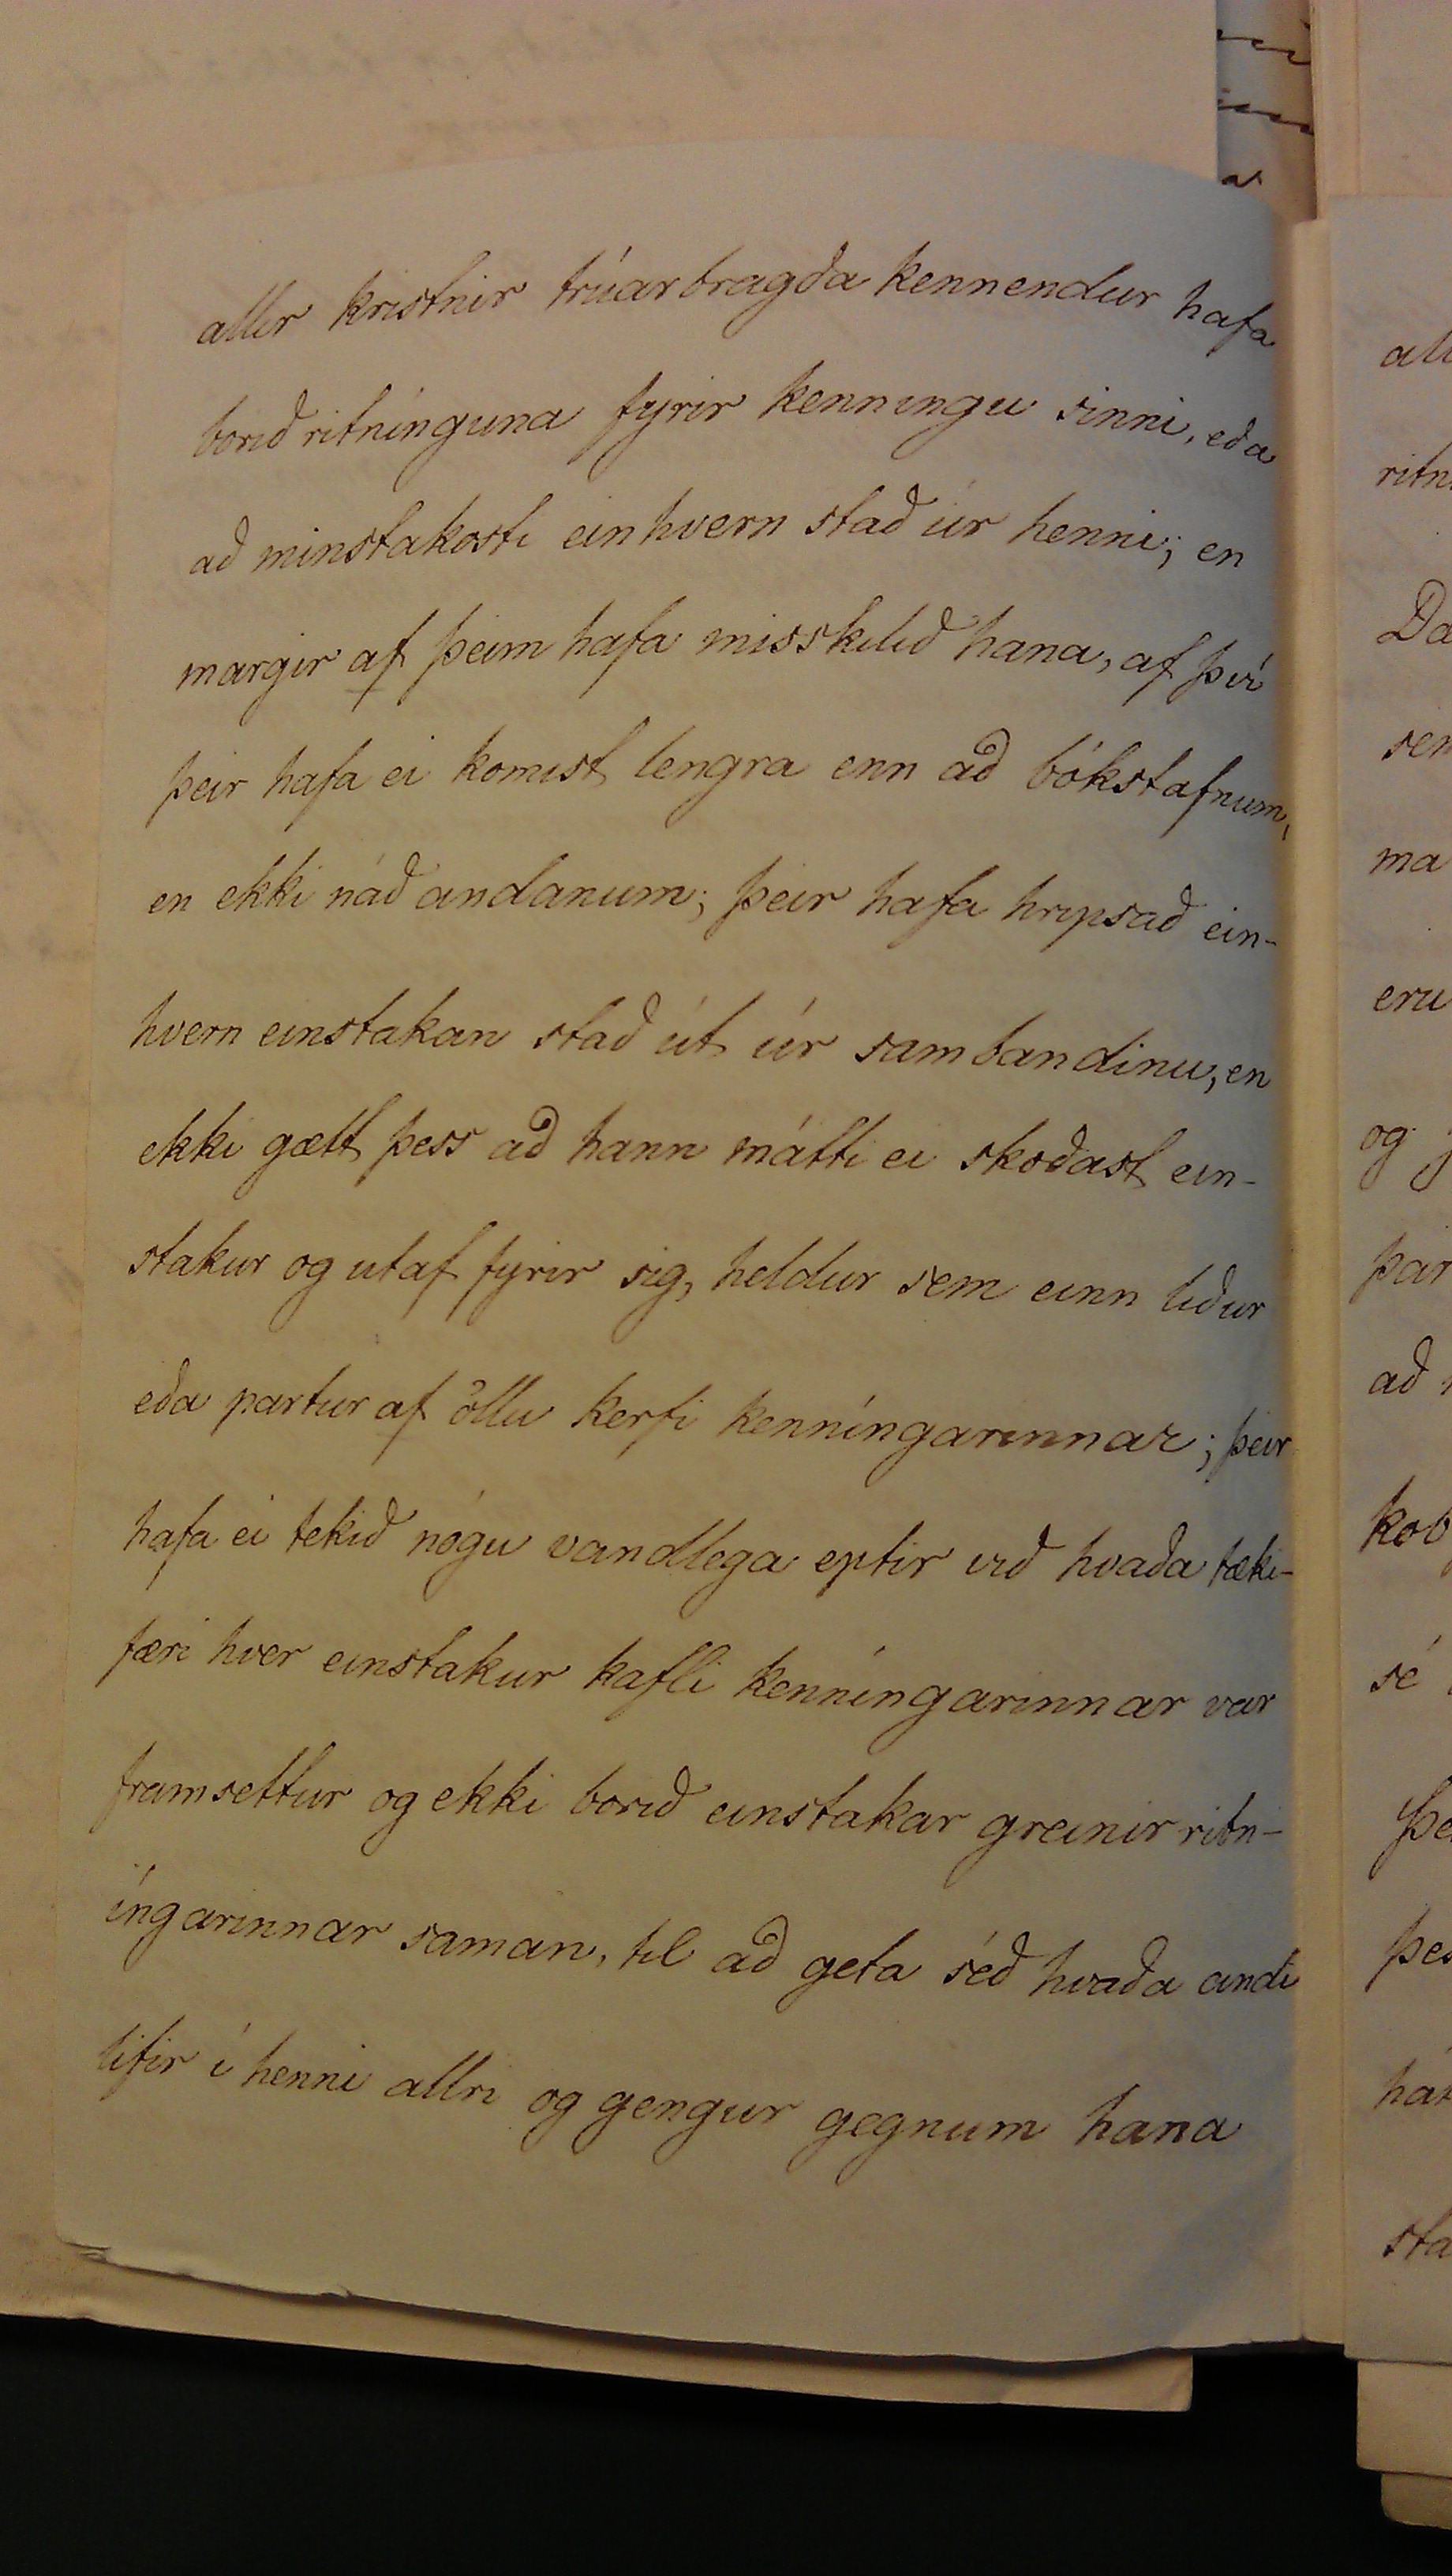 allir kristnir trúarbragða kennendur hafa
borið ritnínguna fyrir kenningu sinni, eða
að minstakosti einhvern stað úr henni; en
margir af þeim hafa misskilið hana, af því
þeir hafa ei komist lengra enn að bókstafnum,
en ekki náð andanum; þeir hafa hripsað ein-
hvern einstakan stað út úr sambandinu, en
ekki gætt þess að hann mátti ei skoðast ein-
stakur og utaf fyrir sig, heldur sem einn liður
eða partur af öllu kerfi kenníngarinnar; þeir
hafa ei tekið nógu vandlega eptir við hvaða tæki-
færi hver einstakur kafli kenníngarinnar var
framsettur og ekki borið einstakar greinir ritn-
íngarinnar saman, til að geta séð hvaða andi
lifir í henni allri og gengur gegnum hana
all
ritn
Da
sem
ma
eru
og
þar
að
kob
sé
Þe
þes
há
sta